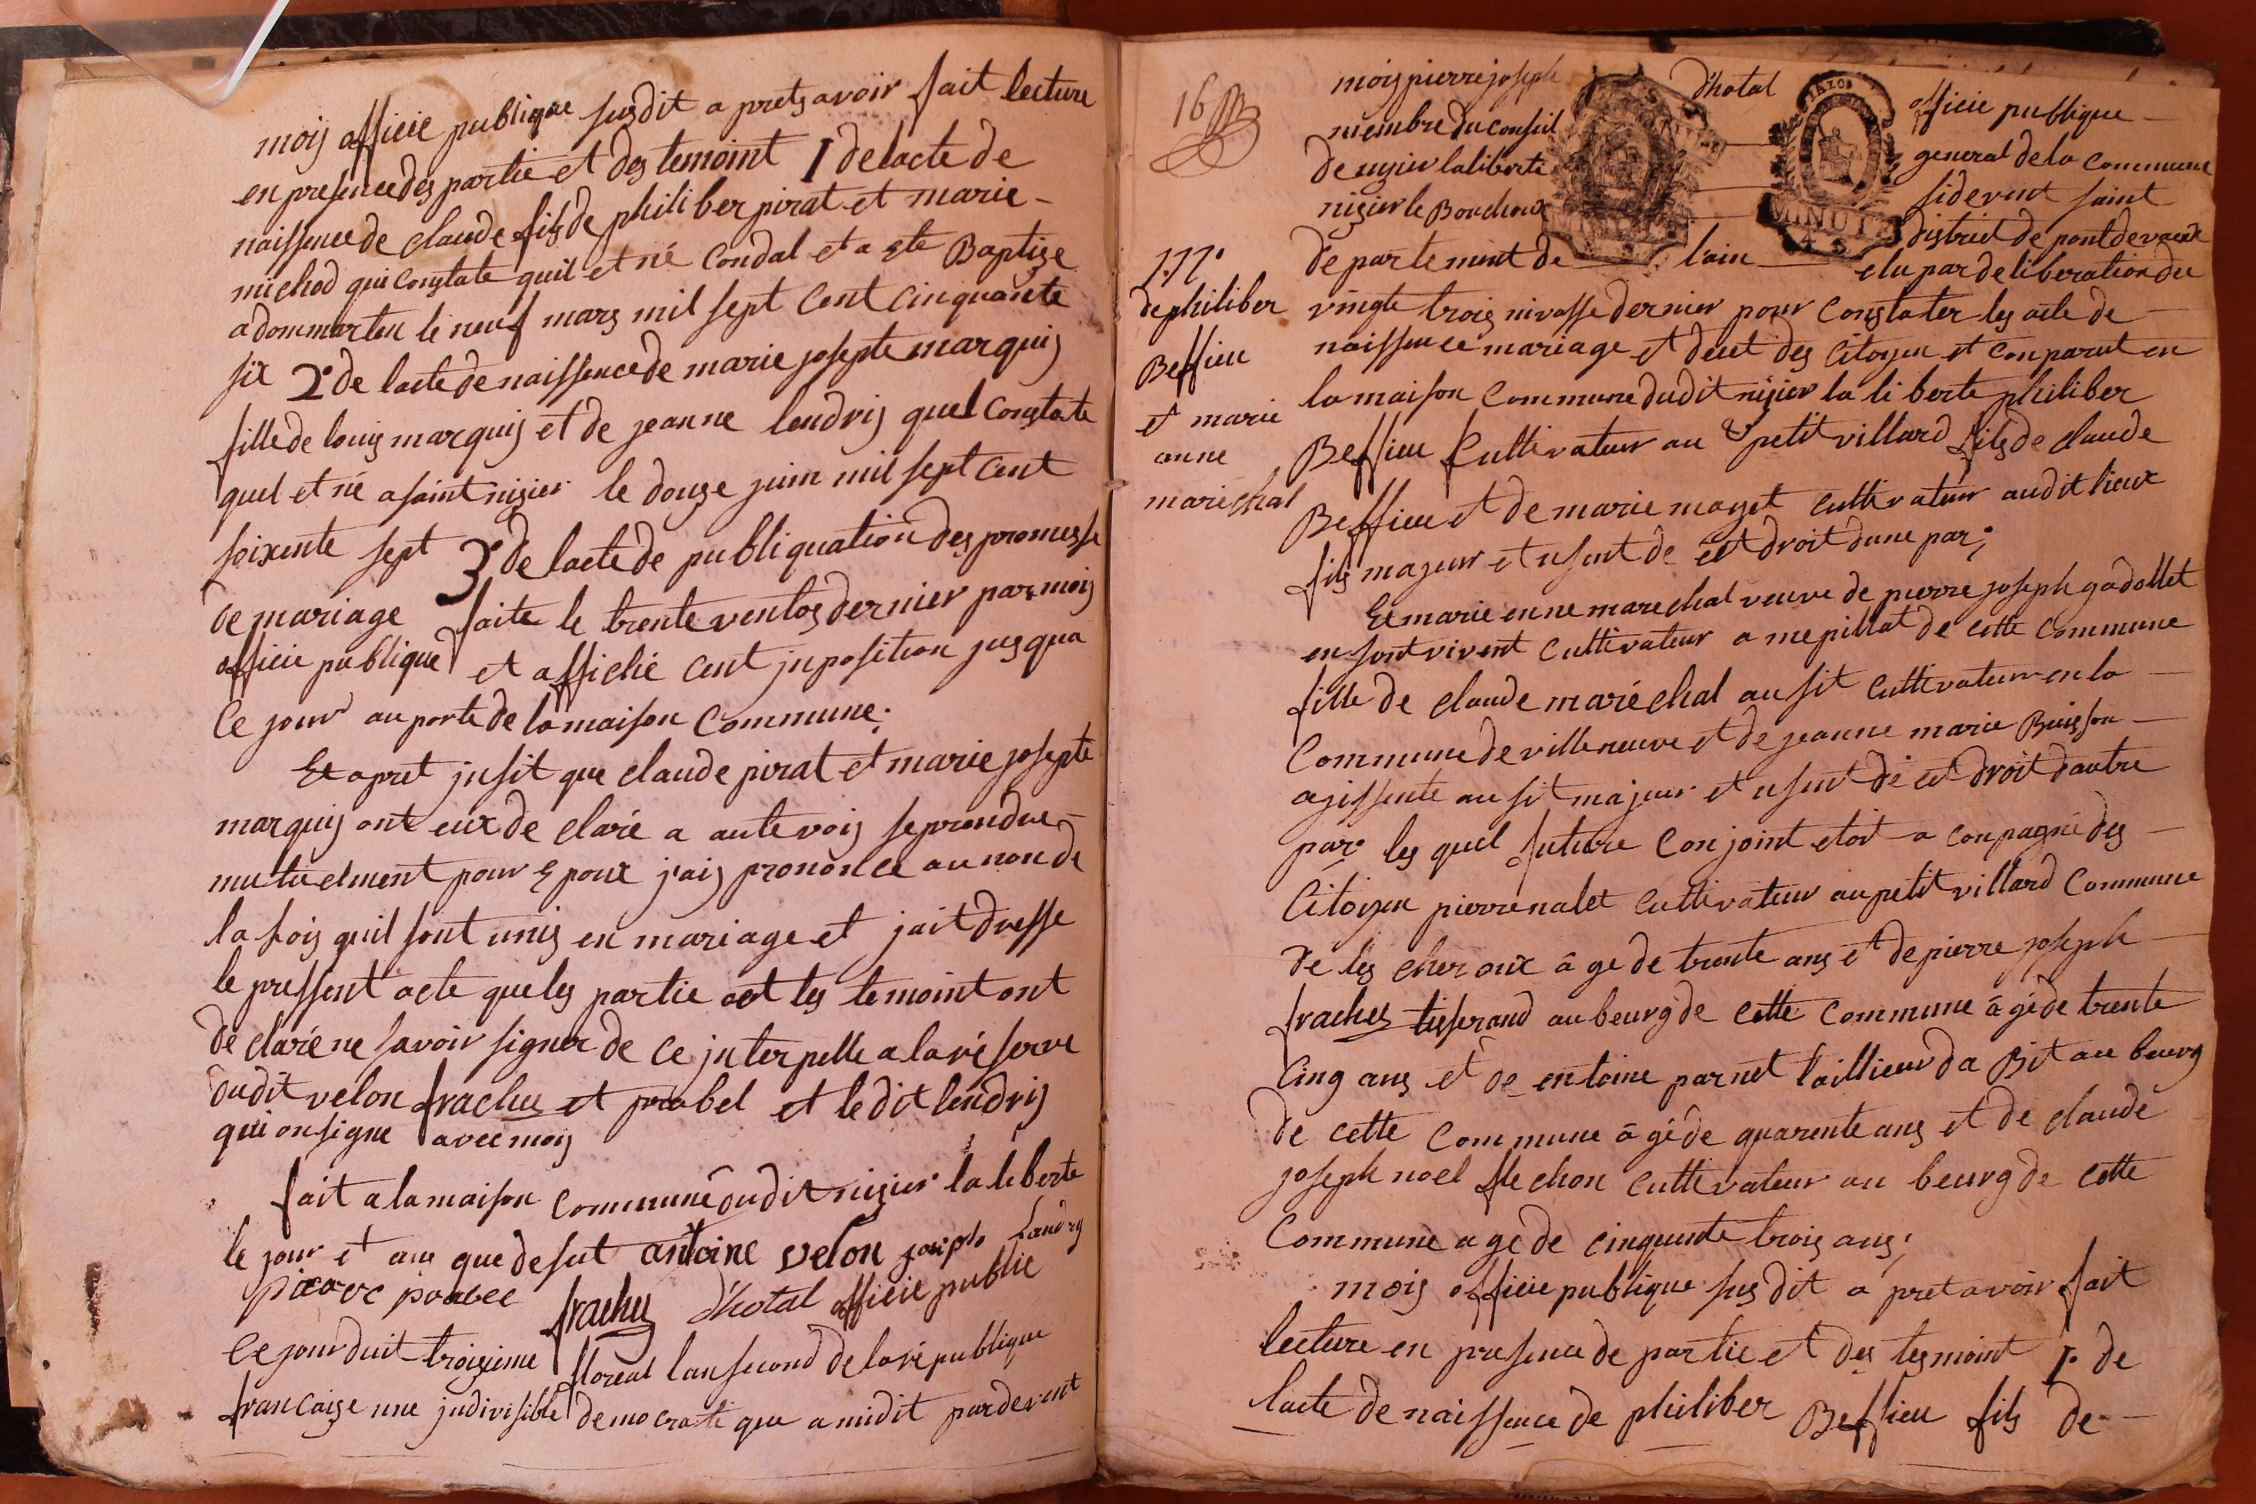 mois officie publique susdit a prets avoir fait lecture
en presence des partie et des temoint 1 de lacte de
naissence de claude fils de philiber pirat et marie -
michod qui constate quil et né condal et a ete Baptize
a dommarten le neuf mars mil sept cent cinquante
six 2° de lacte de naissence de marie josepte marquis
fille de louis marquis et de jeanne lendris quel constate
quel et né a saint nizier le douze juin mil sept cent
soixente sept 3° de lacte de publiquation des promesse
de mariage faite le trente ventos dernier par mois
officie publique et affiché cent jnposition jusqua
ce jour au porte de la maison commune;
Et apret jnsit que claude pirat et marie josepte
marquis ont eux de claré a aute vois se prendre -
mutuelment pour epoux j'ais prononce au non de
la lois quil sont unis en mariage et jait dresse
le pressent acte que les partie et les temoint ont
de claré ne savoir signer de ce jnterpelle a la ré serve
dudit velon frachet et prabel et le dit lendris
qui on signe avec mois
fait a la maison commune dudit nizier la liberte
le jour et ans que desut antoine velon joseph Landry
piere prabel frachet d'hotal officie public
Ce jourduit troizime floreal lan second de la ré publique
francaize une jndivisible democrate que a midit pardevent
16
mois pierre joseph d'hotal officie publique -
membre du conseil general de la commune
de nizier la liberte sidevent saint
nizier le Bouchoux district de pont de vaux
de partement de lain elu par deliberation du
MINUT
177°
de philiber
Beffieu
et marie
anne
maréchal
vingte trois nivosse dernier pour constater les acte de -
naissence mariage et decet des citoyen et conparut en
la maison commune dudit nizier la li berte philiber
Beffieu cultivateur au petit villard fils de claude
Beffieu et de marie mayet cultivateur audit lieux
fils majeur et usent de cet droit dune par;
Et marie enne marechal veuve de pierre joseph gadollet
en sont vivent cultivateur a mepillat de cette commune
fille de claude maréchal au sit cultivateur en la -
commune de villeneuve et de jeanne marie Buisson -
agissente au sit majeur et usent de cet droit dautre
par les quel future conjoint etoit a conpagné des -
citoyen pierre nalet cultivateur au petit villard commune
de les cheroux âge de trente ans et de pierre joseph -
frachet tisserand au beurg de cette commune âgé de trente
cinq ans et de entoine parnet taillieur da Bit au beurg
de cette commune âgé de quarente ans et de claude
joseph noel flechon cultivateur au beurg de cette
commune age de cinquente trois ans;
mois officie publique susdit a pret avoir fait
lecture en presence de partie et des tesmoint 1° de
lacte de naissence de philiber Beffieu fils de -